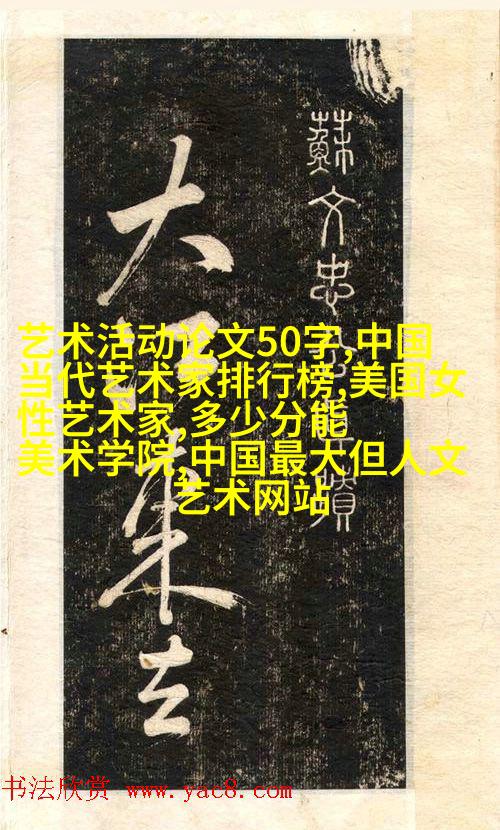 蘇文忠
大東去
艺术活动论文50字,中国
当代艺术家排行榜,美国女
性艺术家,多少分能
美术学院,中国最大但人文
艺术网站
书法欣赏 www.yac8.com